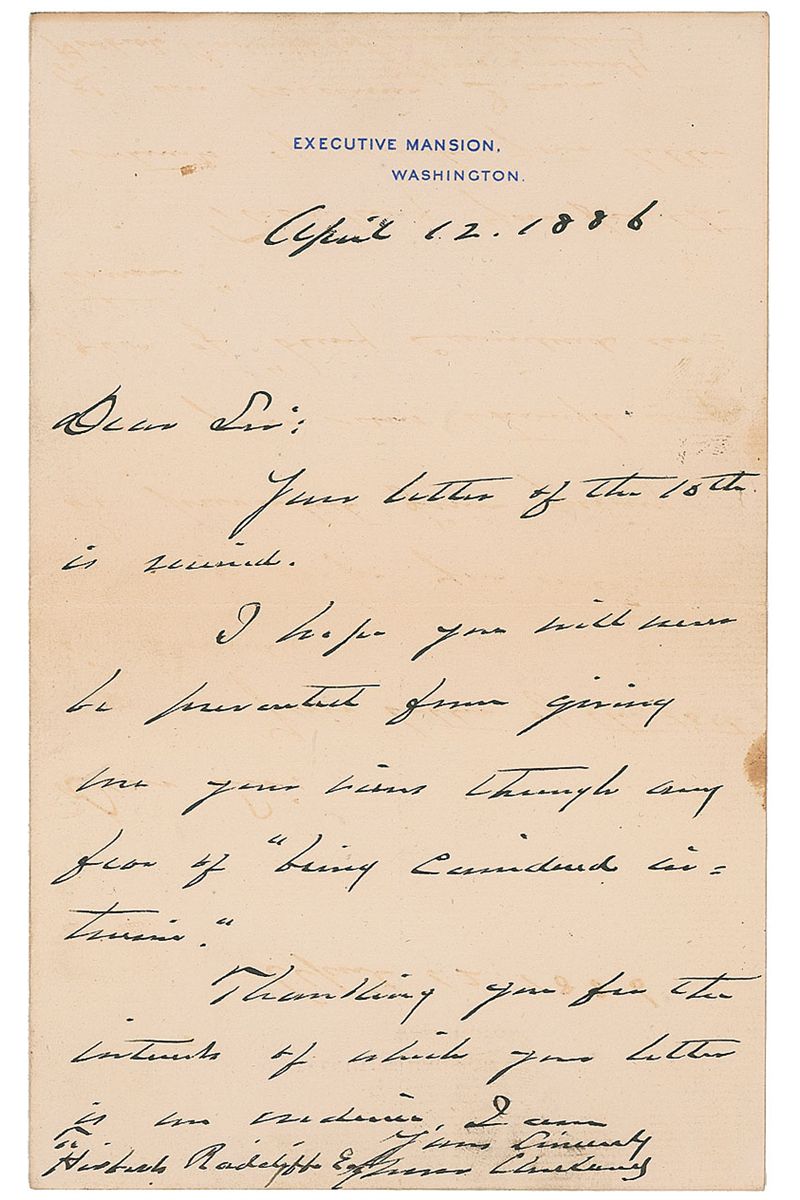 EXECUTIVE MANSION,
WASHINGTON.
April 12. 1886
Dear Sir:
Your letter of the 10th
is received.
I hope you will never
be prevented from giving
me your views through any
fear of "being considered in=
trusive."
Thanking you for the
interest of which your letter
is an evidence, I am
Yours Sincerely
Grover Cleveland
To
Radcliffe Esq